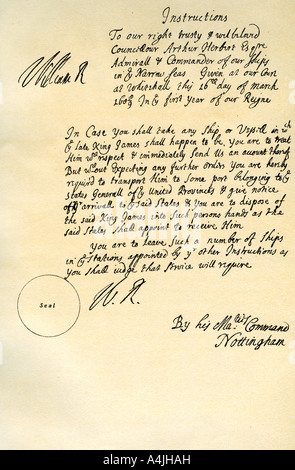 Instructions
To our right trusty & welbeloved
Councellour Arthur Herbert Esqre
Admirall & Commander of our Ships
in ye Narrow seas Given at our Court
at Whitehall this 16th day of March
1689 In ye first year of our Reigne
William R
In Case you shall take any Ship or Vessell in wch
ye late King James shall happen to be, you are to treat
Him wth respect & immediately Send Us an account thereof
But wthout Expecting any further orders you are hereby
requird to transport Him to Some port belonging to ye
States Generall of ye United Provinces & give notice
of yr arrivall to ye said States & you are to dispose of
the said King James into Such persons hands as the
said States shall appoint to receive Him
you are to leave Such number of Ships
in ye Stations appointed by yr other Instructions as
you shall judge that Service will require
Seal
W. R.
By his Maties Command
Nottingham
alamy
A4JHAH